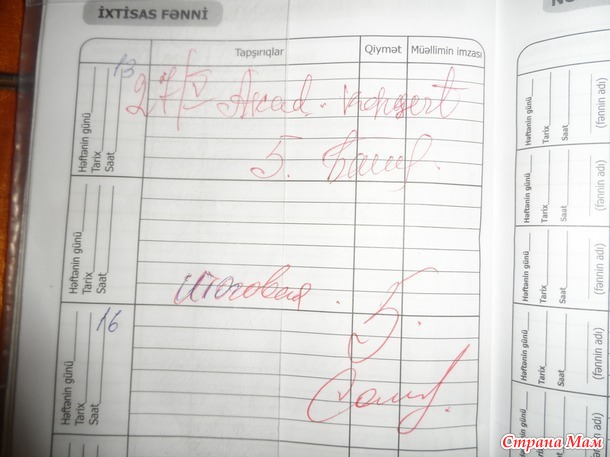 İXTİSAS FƏNNİ
Tapşırıqlar
Qiymət
Müəllimin imzası
Həftənin günü
Tarix
Saat
13
27/V Akad. konsert
5.
Həftənin günü
Tarix
Saat
итоговая. 5.
Həftənin günü
Tarix
Saat
16
Həftənin günü
Tarix
Saat
(fənnin adı)
Həftənin günü
Tarix
Saat
(fənnin adı)
Həftənin günü
Tarix
Saat
(fənnin adı)
Həftənin günü
Tarix
Saat
(fənnin adı)
Həftənin günü
Tarix
Saat
(fənnin adı)
Страна Мам